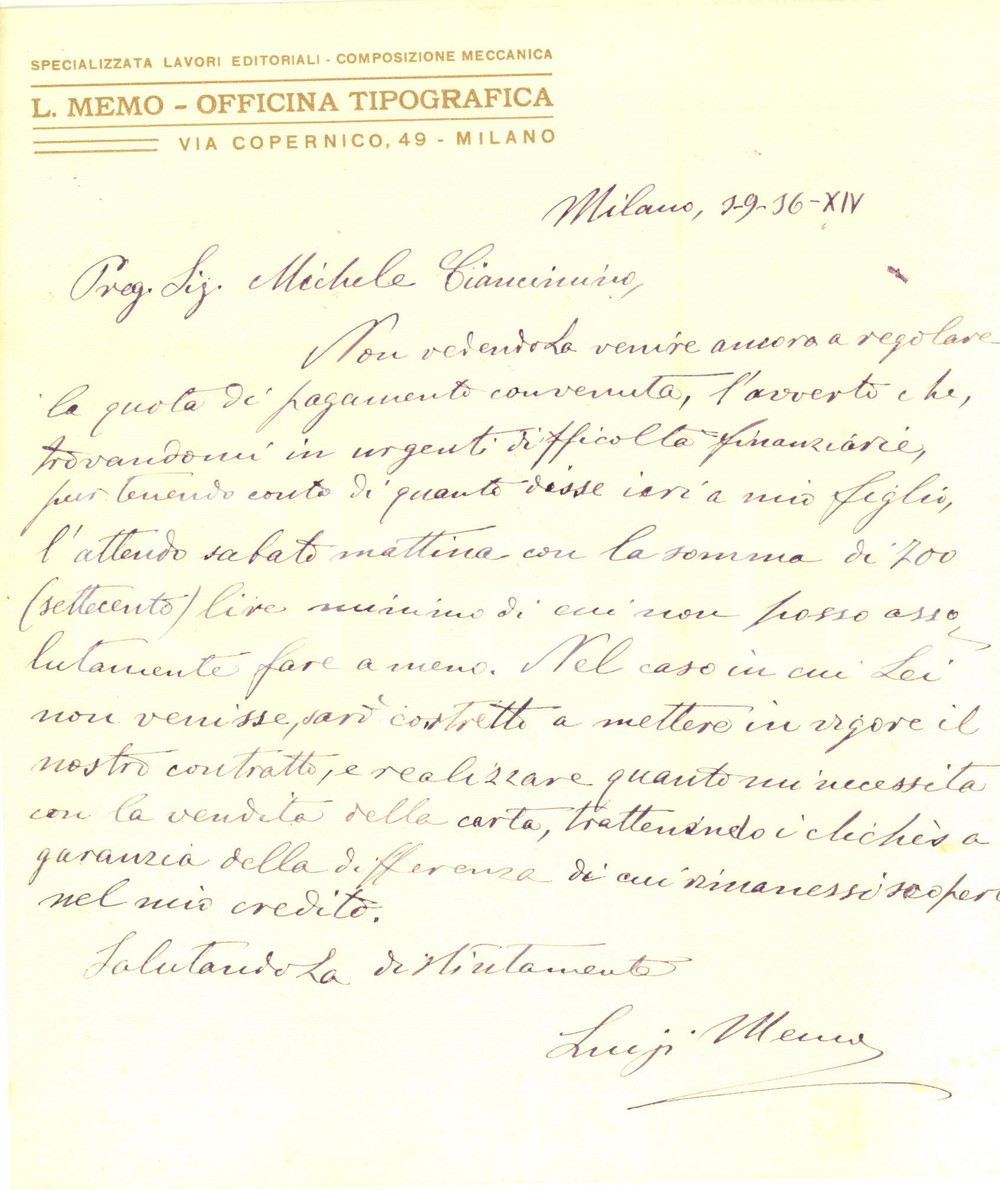 SPECIALIZZATA LAVORI EDITORIALI - COMPOSIZIONE MECCANICA
L. MEMO - OFFICINA TIPOGRAFICA
VIA COPERNICO, 49 - MILANO
Milano, 3-9-36-XIV
Preg. Sig. Michele Ciancimino,
Non vedendoLa venire ancora a regolare
la quota di pagamento convenuta, l'avverto che,
trovandomi in urgenti difficoltà finanziarie,
pur tenendo conto di quanto disse ieri a mio figlio,
l'attendo sabato mattina con la somma di 700
(settecento) lire minimo di cui non posso asso-
lutamente fare a meno. Nel caso in cui Lei
non venisse, sarò costretto a mettere in vigore il
nostro contratto, e realizzare quanto mi necessita
con la vendita della carta, trattenendo i clichès a
garanzia della differenza di cui rimanessi scoperto
nel mio credito.
SalutandoLa distintamente
Luigi Memo